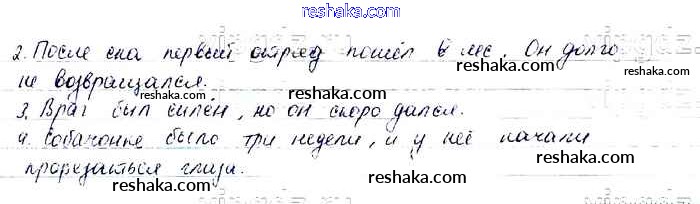 reshaka.com
2. После сна первый отряд пошёл в лес. Он долго
не возвращался.
reshaka.com
reshaka.com
3. Враг был силён, но он скоро дался.
reshaka.com
4. Собачонке было три недели, и у неё начали
reshaka.com
прорезаться глаза.
reshaka.com
reshaka.com